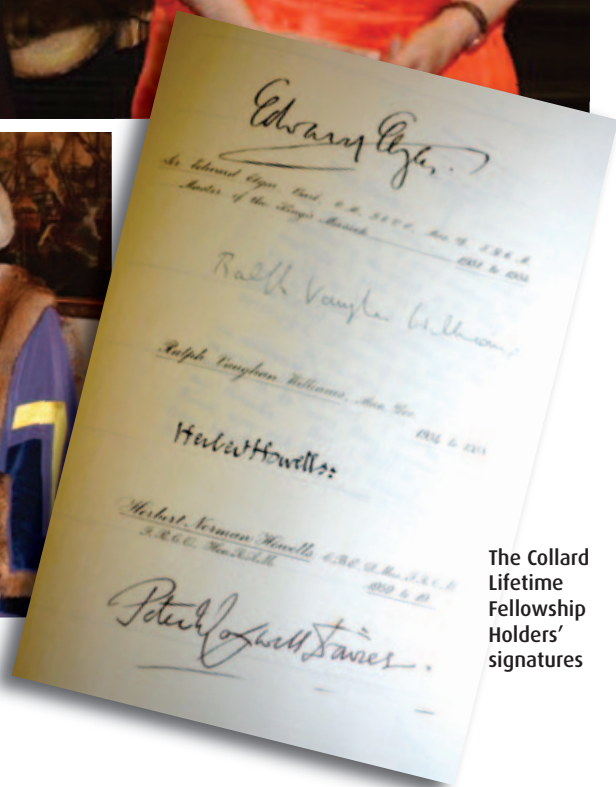 Edward Elgar.
Sir Edward Elgar Bart. O.M.
Master of the King's Musick
Ralph Vaughan Williams
Ralph Vaughan Williams, Mus. Doc.
Herbert Howells:
Herbert Norman Howells
Peter Maxwell Davies.
The Collard
Lifetime
Fellowship
Holders'
signatures